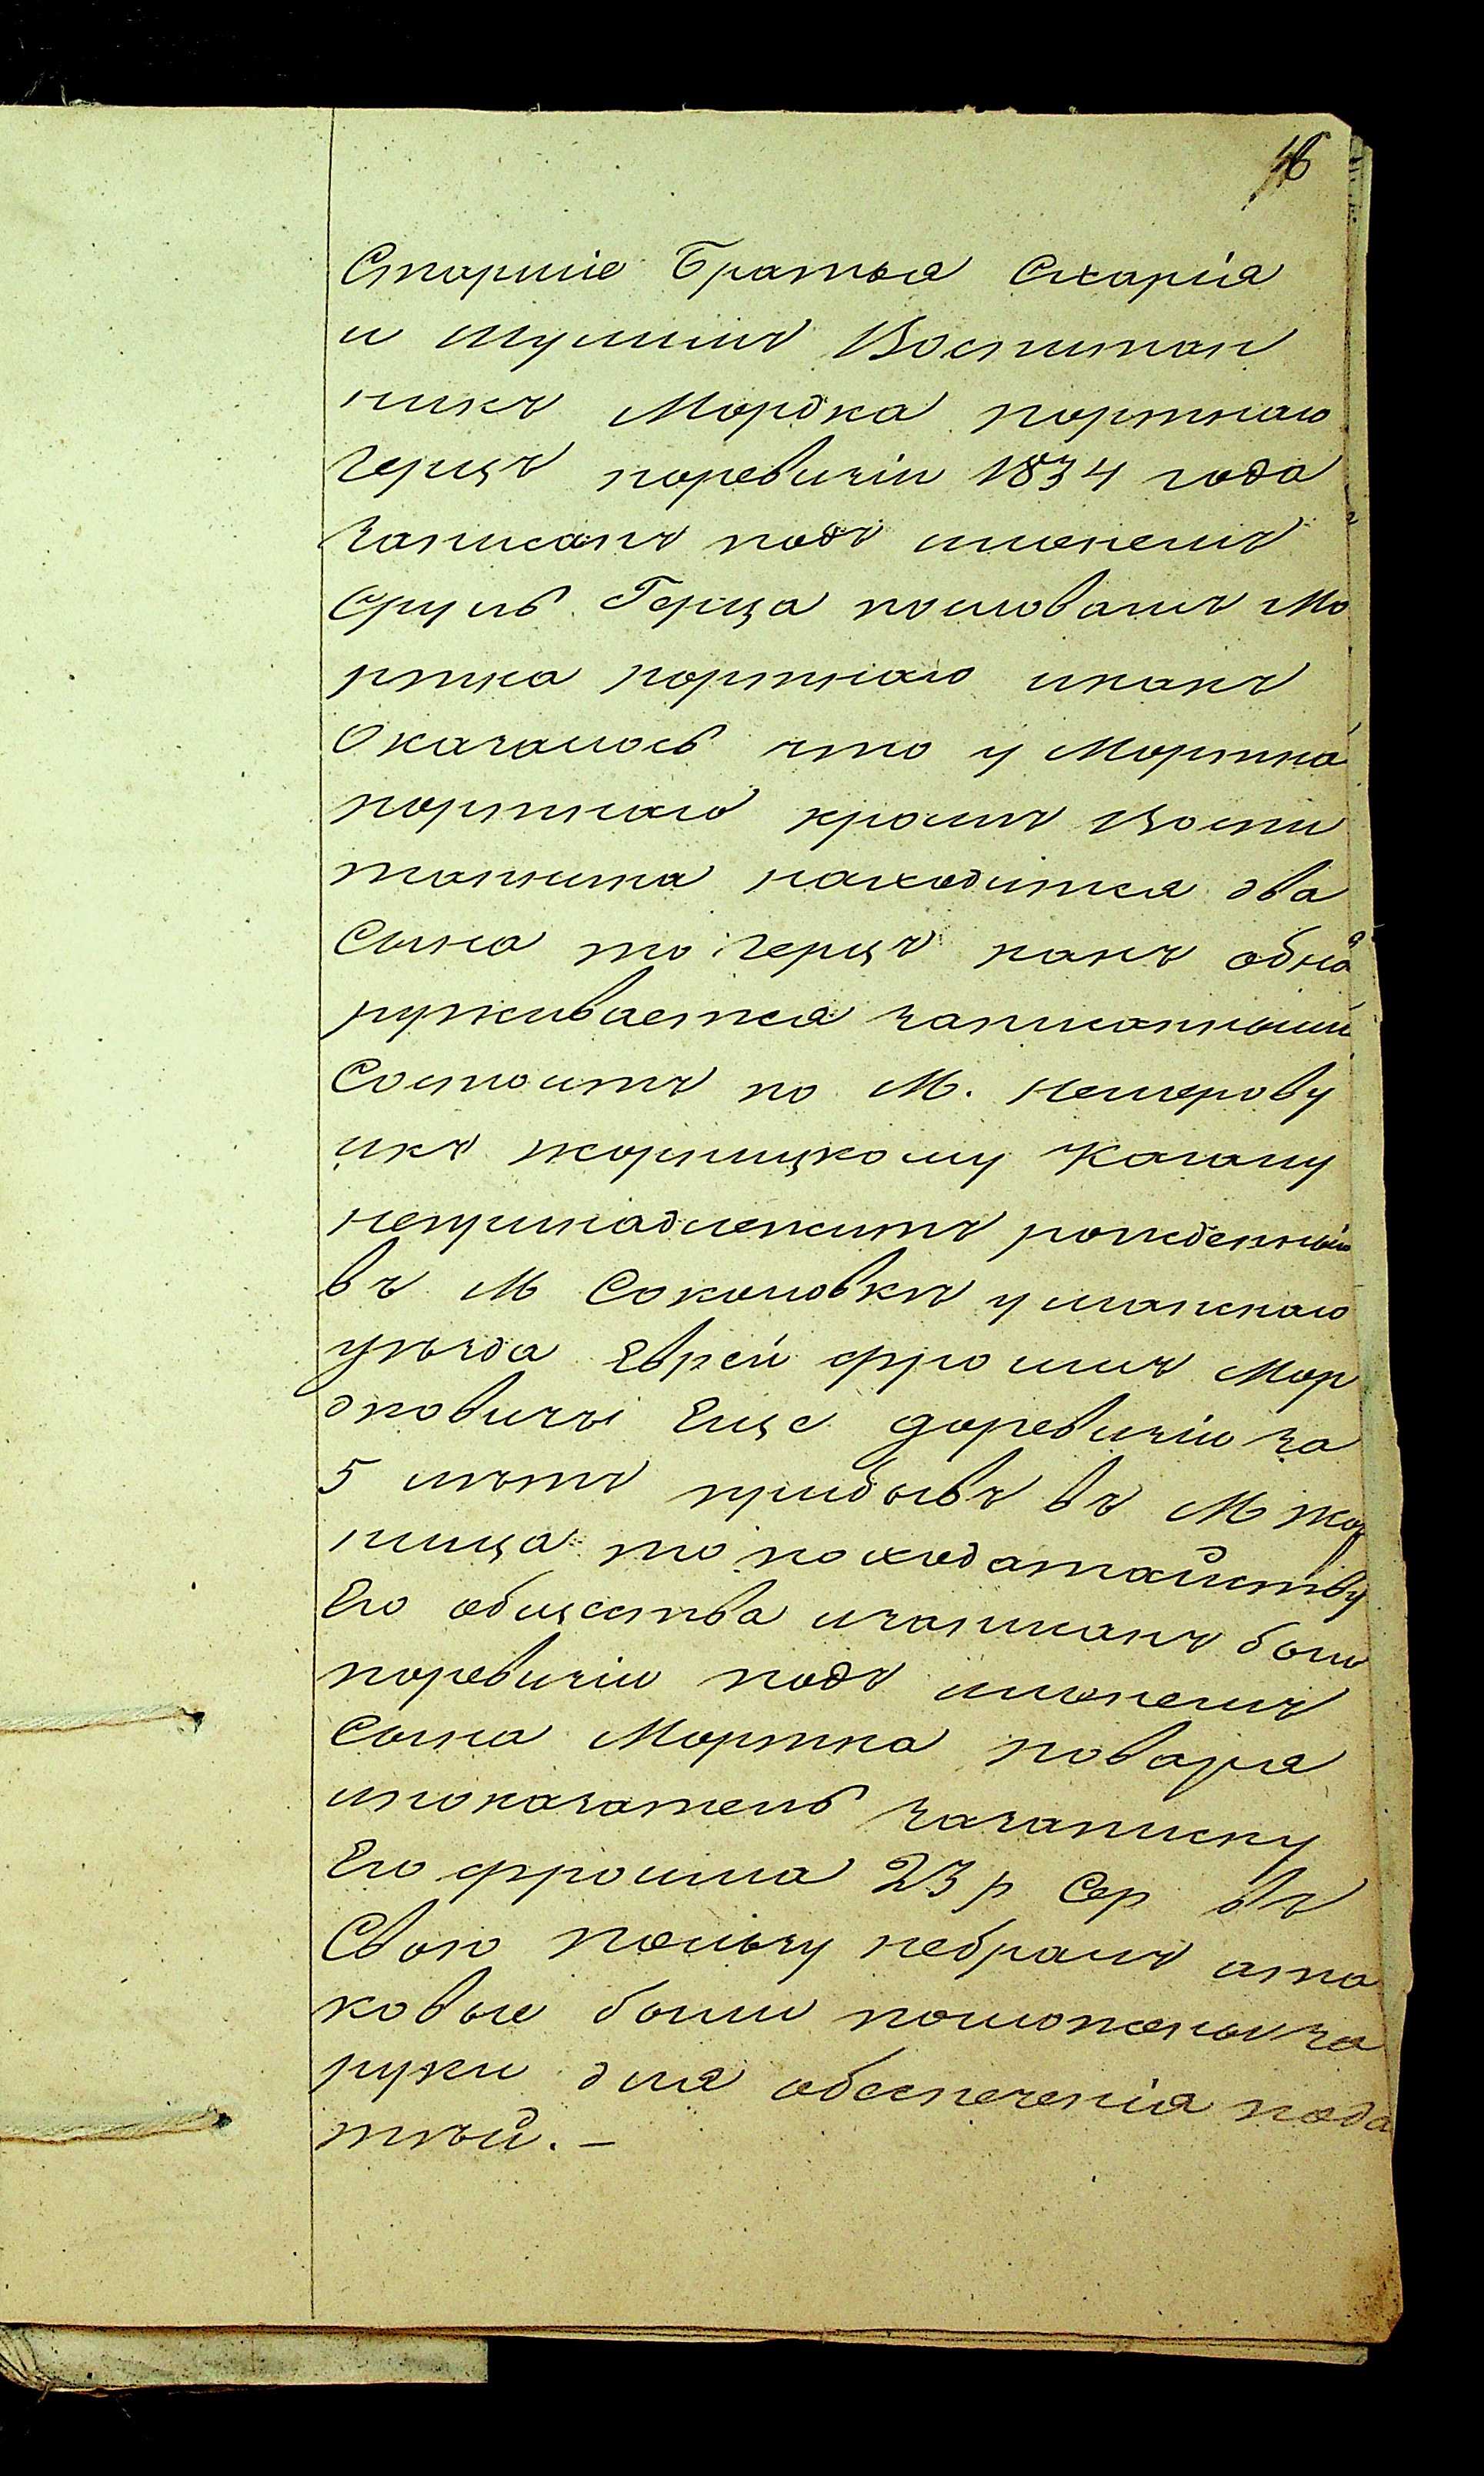 46
Старшіе Братья Схарія
и Шулимъ Воспитан
никъ Мордка портнаго
герцъ поревизіи 1834 года
записанъ подъ именемъ
Сруль Герца пословамъ Мо
ртка портнаго икакъ
Оказалось что у Мортка
портнаго кромъ Воспи
танника находится два
Сына то герцъ какъ обна
руживается записанный
Состоитъ по М. немерову
икъ жорницкому Кагалу
непринадлежитъ рожденный
въ М Соколовкъ уманскаго
уъзда Еврей фроимъ Мор
дковичъ Еще доревизіи за
5 лътъ прибывъ въ М жор
нища то походатайству
Его общества изаписанъ былъ
поревизіи подъ именемъ
Сына Мортка повара
ипоказатель зазаписку
Его фроима 23 р Сер въ
Свою пользу небралъ ата
ковые были положены за
руки для обеспеченія пода
тъй. —